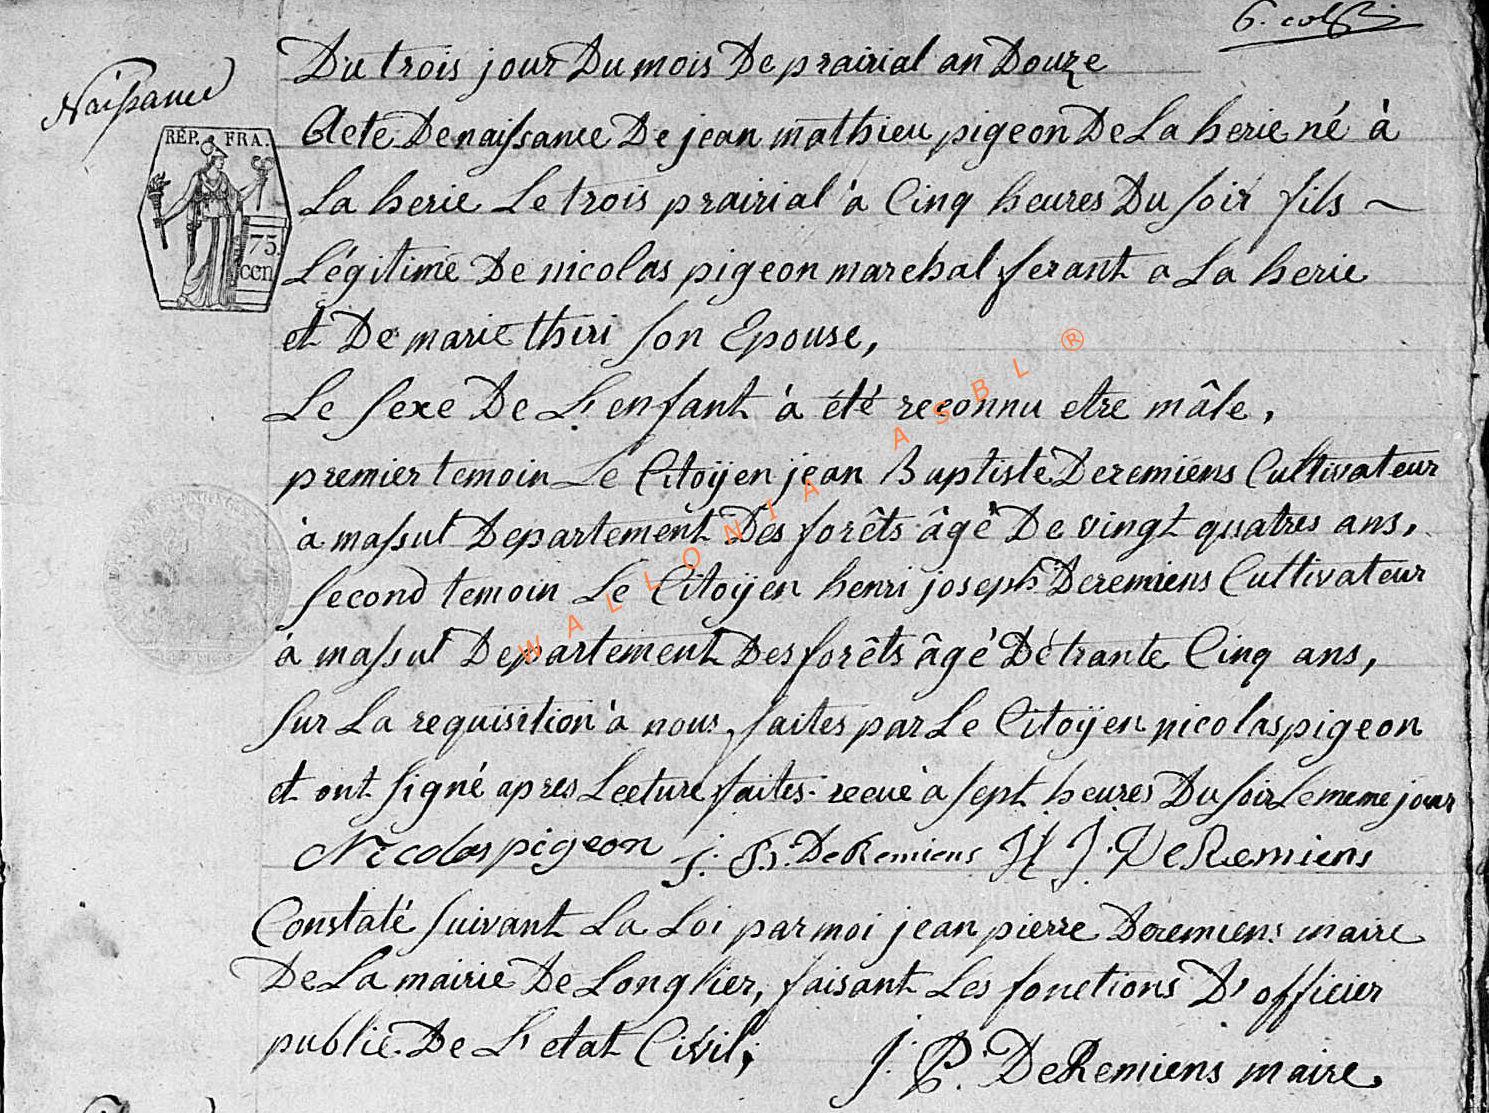 Du trois jour Du mois De prairial an Douze
Naissance
REP. FRA.
75.
cen
Acte De naissance De jean mathieu pigeon De La herie né à
La herie Le trois prairial à Cinq heures Du soir fils ~
Légitime De nicolas pigeon marehal ferant a La herie
et De marie thiri son Epouse,
Le sexe De L'enfant à été reconnu etre mâle,
premier temoin Le Citoÿen jean Baptiste Deremiens Cultivateur
à massul Departement Des forêts âgé De vingt quatres ans,
second temoin Le Citoÿen henri joseph Deremiens Cultivateur
à massul Departement Des forêts âgé De trante Cinq ans,
sur La requisition à nous faites par Le Citoÿen nicolas pigeon
et ont signé apres Lecture faites. recue à sept heures Du soir Le meme jour
Nicolas pigeon J. B. DeRemiens H J. DeRemiens
Constaté suivant La Loi par moi jean pierre Deremiens maire
De La mairie De Longlier, faisant Les fonctions D'officier
public De L'etat Civil;
J. P. DeRemiens maire.
WALLONIA ASBL ®